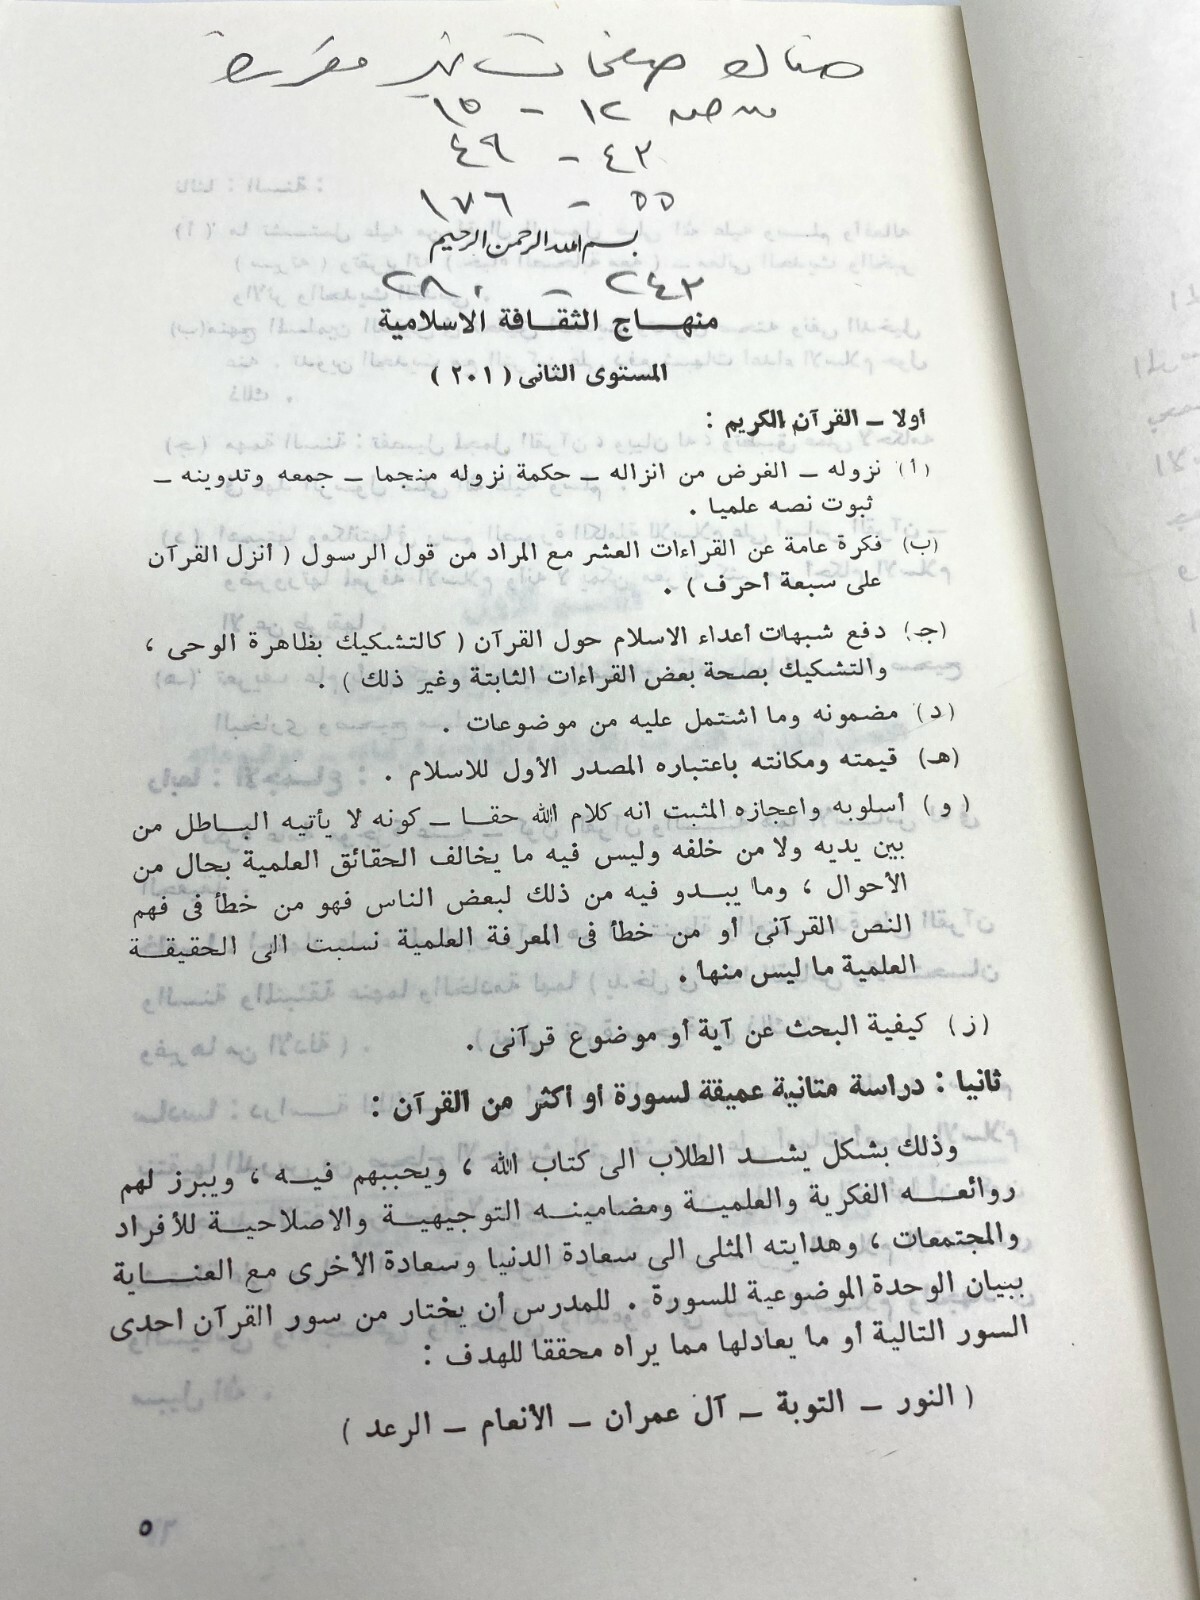 هناك صفحات غير مقررة
من صفحه ١٢ - ١٥
٤٣ - ٤٩
٥٥ - ١٧٦
بسم الله الرحمن الرحيم
٢٤٣ - ٢٨٠
منهـــاج الثقـافة الاسلامية
المستوى الثانى ( ٢٠١ )
أولا ــ القرآن الكريم :
(أ) نزوله ــ الغرض من انزاله ــ حكمة نزوله منجما ــ جمعه وتدوينه ــ
ثبوت نصه علميا .
(ب) فكرة عامة عن القراءات العشر مع المراد من قول الرسول ( أنزل القرآن
على سبعة أحرف ) .
(جـ) دفع شبهات أعداء الاسلام حول القرآن ( كالتشكيك بظاهرة الوحى ،
والتشكيك بصحة بعض القراءات الثابتة وغير ذلك ) .
( د ) مضمونه وما اشتمل عليه من موضوعات .
(هـ) قيمته ومكانته باعتباره المصدر الأول للاسلام .
( و ) أسلوبه واعجازه المثبت انه كلام الله حقـا ــ كونه لا يأتيه البـاطل من
بين يديه ولا من خلفه وليس فيه ما يخالف الحقائق العلمية بحال من
الأحوال ، وما يبـدو فيه من ذلك لبعض الناس فهو من خطأ فى فهم
النص القرآنى أو من خطأ فى المعرفة العلمية نسبت الى الحقيقـة
العلمية ما ليس منها .
( ز ) كيفية البحث عن آية أو موضوع قرآنى .
ثانيا : دراسة متانية عميقة لسورة او اكثر من القرآن :
وذلك بشكل يشـد الطلاب الى كتاب الله ، ويحببهم فيـه ، ويبرز لهم
روائعـه الفكرية والعلميـة ومضامينـه التوجيهيـة والاصلاحيـة للأفراد
والمجتمعات ، وهدايته المثلى الى سعادة الدنيا وسعادة الأخرى مع العنـاية
ببيان الوحدة الموضوعية للسورة . للمدرس أن يختار من سور القرآن احدى
السور التالية أو ما يعادلها مما يراه محققا للهدف :
( النور ــ التوبة ــ آل عمران ــ الأنعام ــ الرعد )
٥